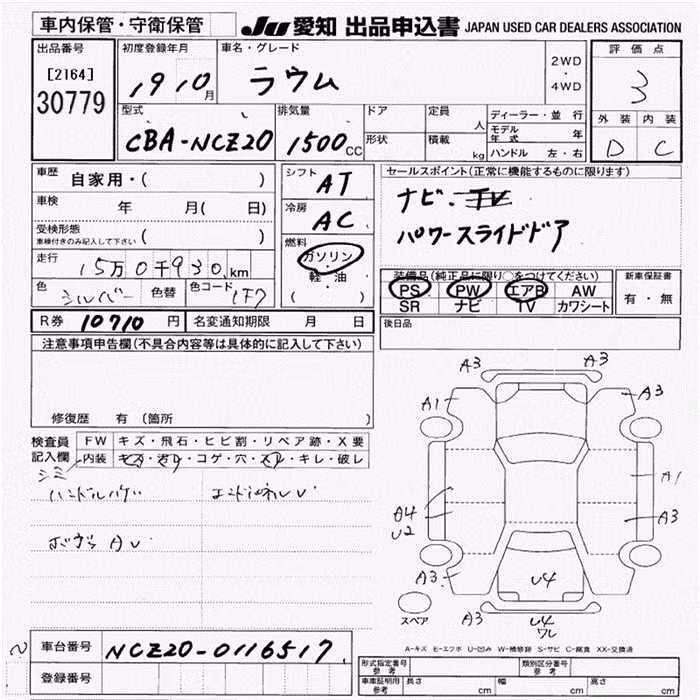 車内保管・守衛保管
JU 愛知 出品申込書 JAPAN USED CAR DEALERS ASSOCIATION
出品番号
[2164]
30779
初度登録年月
19 10月
車名・グレード
ラウム
2WD
・
4WD
評価点
3
外装 内装
D C
型式
CBA-NCZ20
排気量
1500CC
ドア
形状
定員 人
積載 kg
ディーラー・並行
モデル年式 年
ハンドル 左・右
車歴
自家用・( )
車検
年 月( 日)
受検形態
車検付きのみ記入して下さい ( )
走行
15万0千930km
色
シルバー
色替
色コード
1F7
シフト
AT
冷房
AC
燃料
ガソリン
・
軽・油
( )
セールスポイント(正常に機能するものに限ります)
ナビ・TV
パワースライドドア
装備品(純正品に限り○をつけてください)
PS PW エアB AW
SR ナビ TV カワシート
新車保証書
有・無
R券 10710 円
名変通知期限 月 日
後日品
注意事項申告欄(不具合内容等は具体的に記入して下さい)
修復歴 有 (箇所
検査員記入欄
FW キズ・飛石・ヒビ割・リペア跡・X要
内装 キズ・汚れ・コゲ・穴・スレ・キレ・破レ
シミ
ハンドルハゲ
A3 A3
A1 A3
A1
A4
U2
A3
A3 U4
A3 U4
ワレ
スペア
A-キズ E-エクボ U-凹み W-補修跡 S-サビ C-腐食 XX-交換済
車台番号
NCZ20-0116517
登録番号
形式指定番号
参考
類別区分番号
参考
車庫証明用
参考
長さ cm
幅 cm
高さ cm